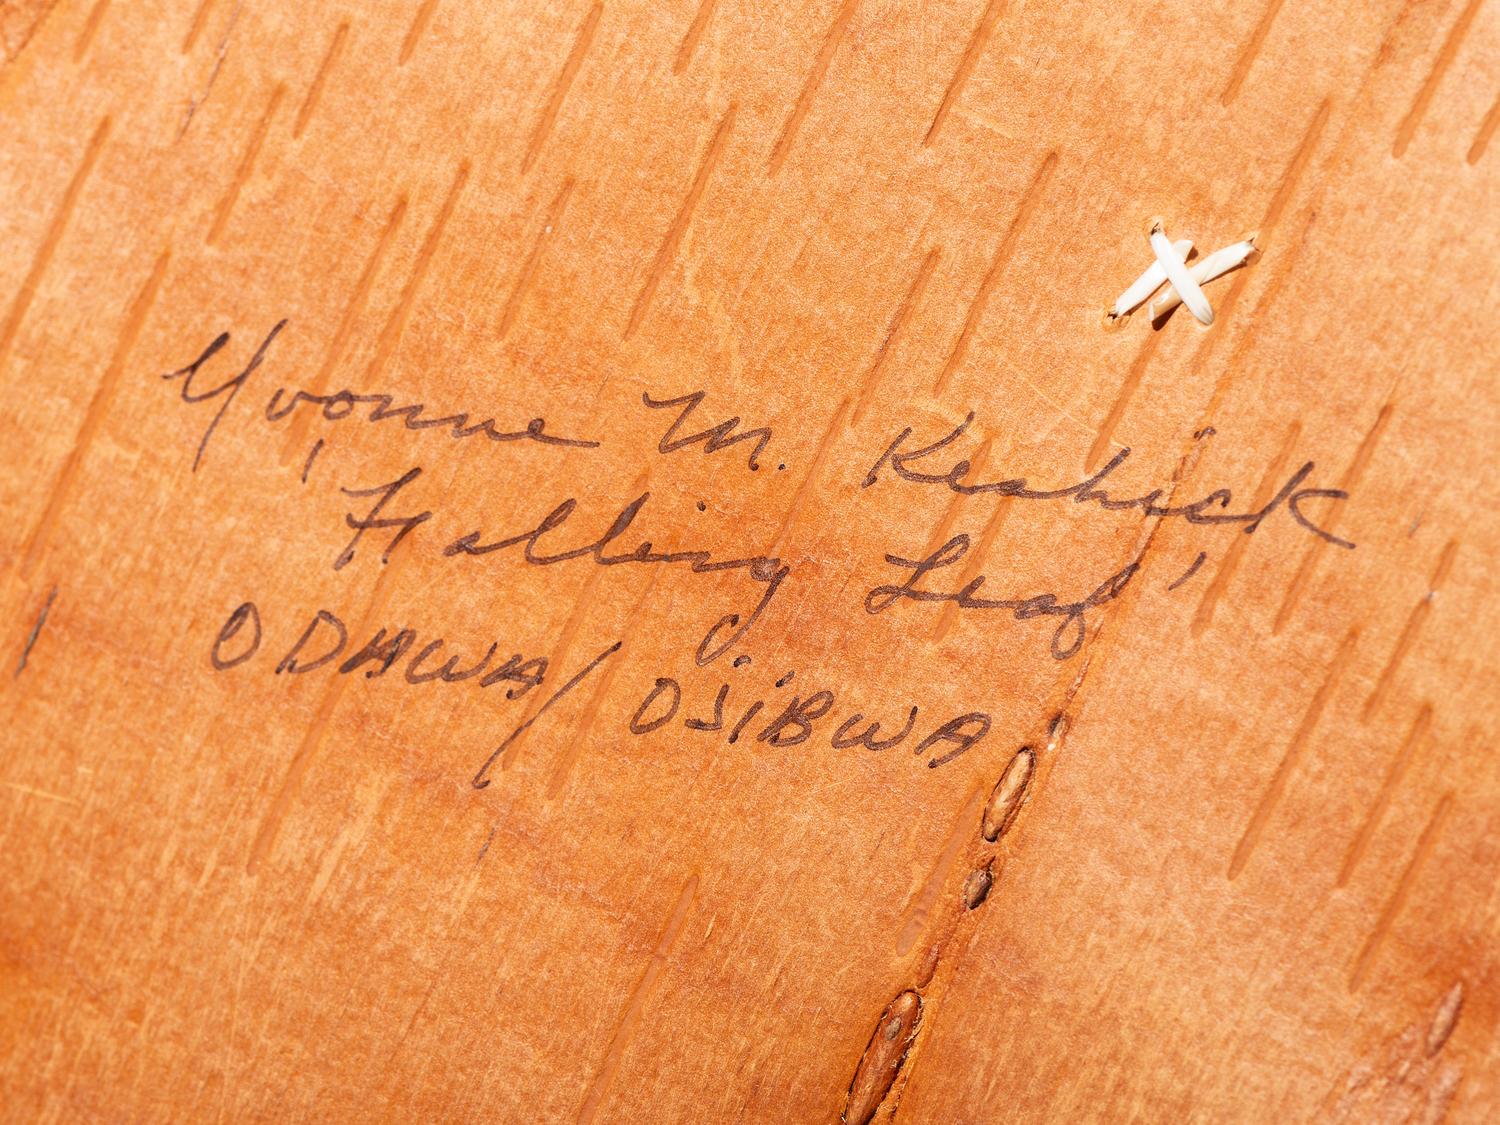 Yvonne M. Keshick
'Falling Leaf'
ODAWA/OJiBWA